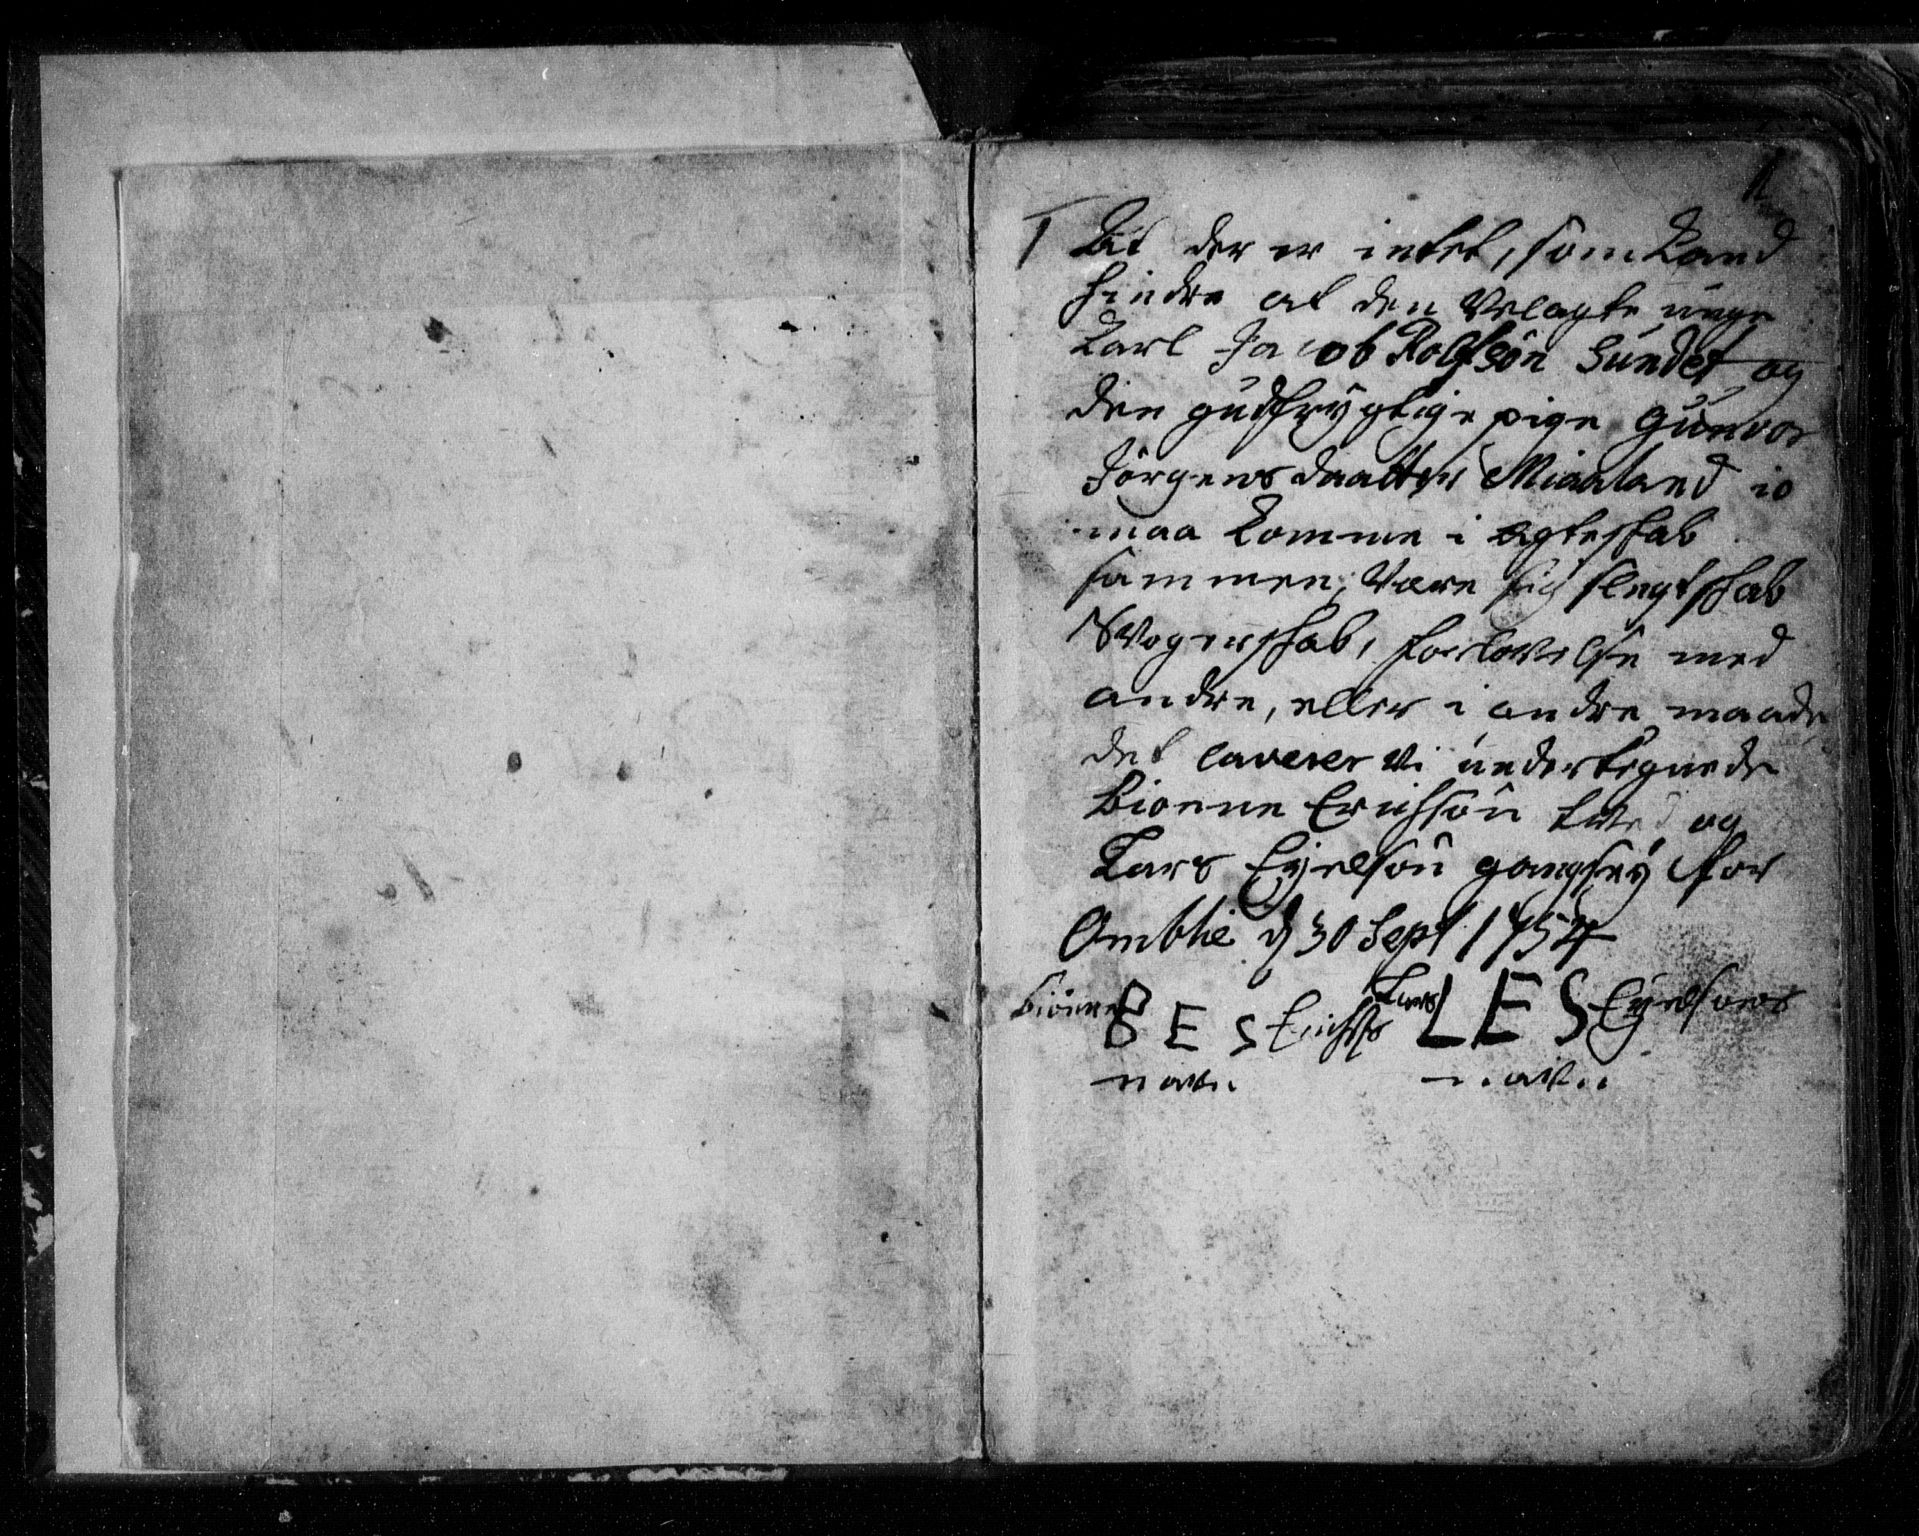 1
1 At der er intet, som kand
hindre at den Velagte unge
Karl Jacob Rolfsön Sundet og
den gudfrygtige pige Gunvor
Jörgensdaatter Miaaland io
maa komme i ægteskab
sammen, være sig slegtskab
Svogerskab, forlovelse med
andre, eller i andre maade,
det caverer vi undertegnede
Biönne Erichsön og
Lars Eyelsön for
Omblie d 30 Sept 1754
Biönne B E S Erichss Lars L E S Eyelsöns
navn navn